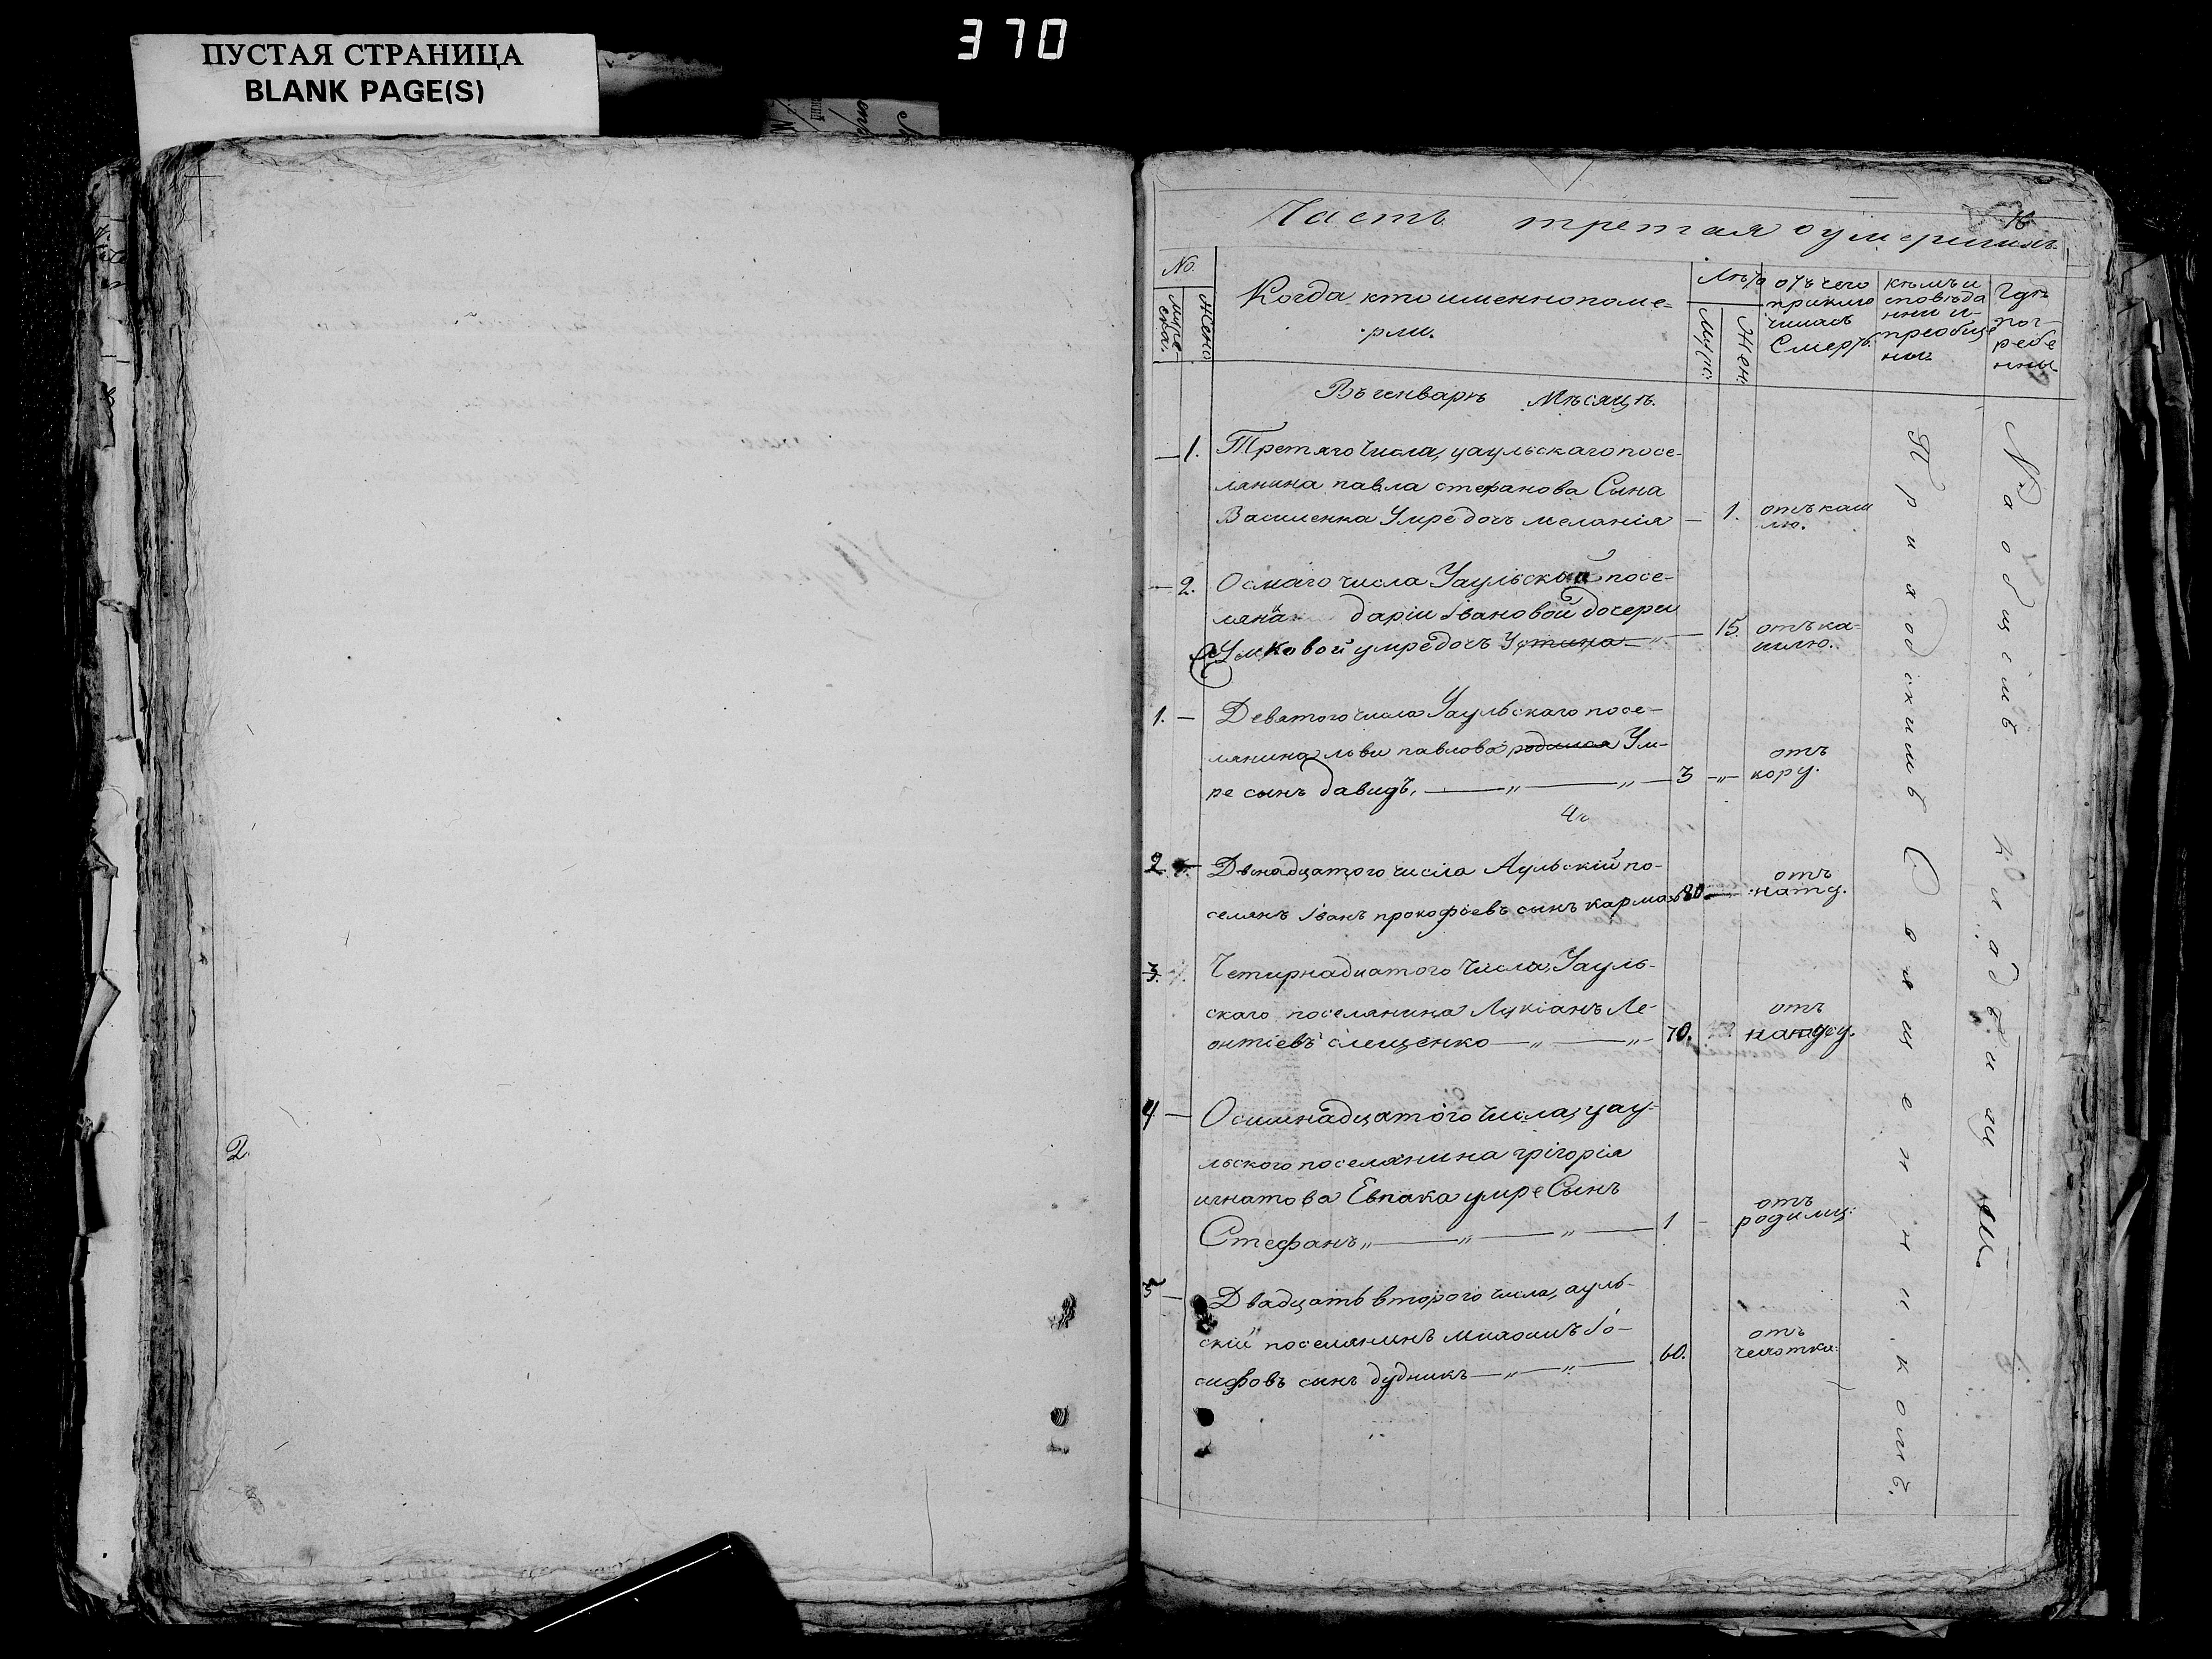 370
ПУСТАЯ СТРАНИЦА
BLANK PAGE(S)
2.
Часть третая о умершихъ
No.
муже
ска.
жено
Когда, кто именно поме-
рли.
Лѣто
Муж:
Жен:
отъ чего
приклю
чилась
Смерть.
кѣмъ и
сповѣда
нни и
преобще
ны
Гдѣ
пог-
ребе
нны.
Въ генварѣ Мѣсяцѣ.
— 1. Третяго числа, уаульскаго посе-
лянина павла стефанова Сына
Василенка Умре дочь меланія — 1. отъ каш
лю.
— 2. Осмаго числа Уаульской посе-
лянки даріи івановой дочери
умре дочь Устина — 15. отъ ка-
шлю.
1. — Девятого числа Уаульскаго посе-
лянина льви павлова родился Ум-
ре сынъ давидъ, — „ — „ — 3 — „ — отъ
кору.
2 — Двенадцатого числа Аульскій по-
селянъ іванъ прокофіевъ сынъ 80 — отъ
нату.
3. Четирнадцатого Числа, Уауль-
скаго поселянина Лукіанъ Ле-
онтіевъ слещенко — „ — „ — 70. отъ
4 — Осимнадцатого Числа, уау-
льского поселянина грігорія
игнатова Евпака умре Сынъ
Стефанъ „ — „ — „ — 1 — отъ
родимц:
5 — Двадцать второго числа, ауль-
скій поселянинъ михаилъ Іо-
сифовъ сынъ дудникъ — „ — „ — 60. отъ
чехотки:
Приходскимъ Священникомъ.
На общемъ кладбищи.